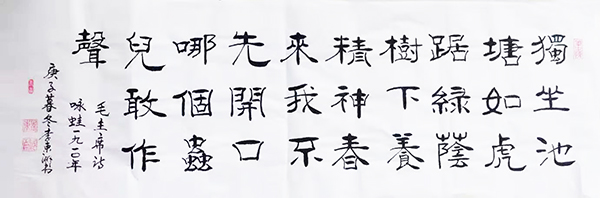 獨坐池
塘如虎
踞綠蔭
樹下養
精神春
來我不
先開口
哪個蟲
兒敢作
聲
毛主席詩
咏蛙一九一〇年
庚子暮冬李東